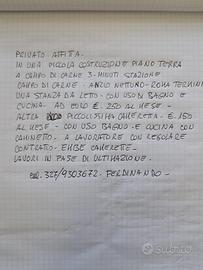 PRIVATO AFFITTA.
IN UNA PICCOLA COSTRUZIONE PIANO TERRA
A CAMPO DI CARNE 3 MINUTI STAZIONE
CAMPO DI CARNE - ANZIO NETTUNO - ROMA TERMINI
UNA STANZA DA LETTO - CON USO DI BAGNO E
CUCINA - AD EURO € 250 AL MESE -
ALTRA PICCOLISSIMA CAMERETTA - € 150
AL MESE - CON USO BAGNO - E CUCINA CON
CAMINETTO - A LAVORATORE CON REGOLARE
CONTRATTO - EMBE CAMERETTE -
LAVORI IN FASE DI ULTIMAZIONE -
327/9303672 - FERDINANDO -
Subito